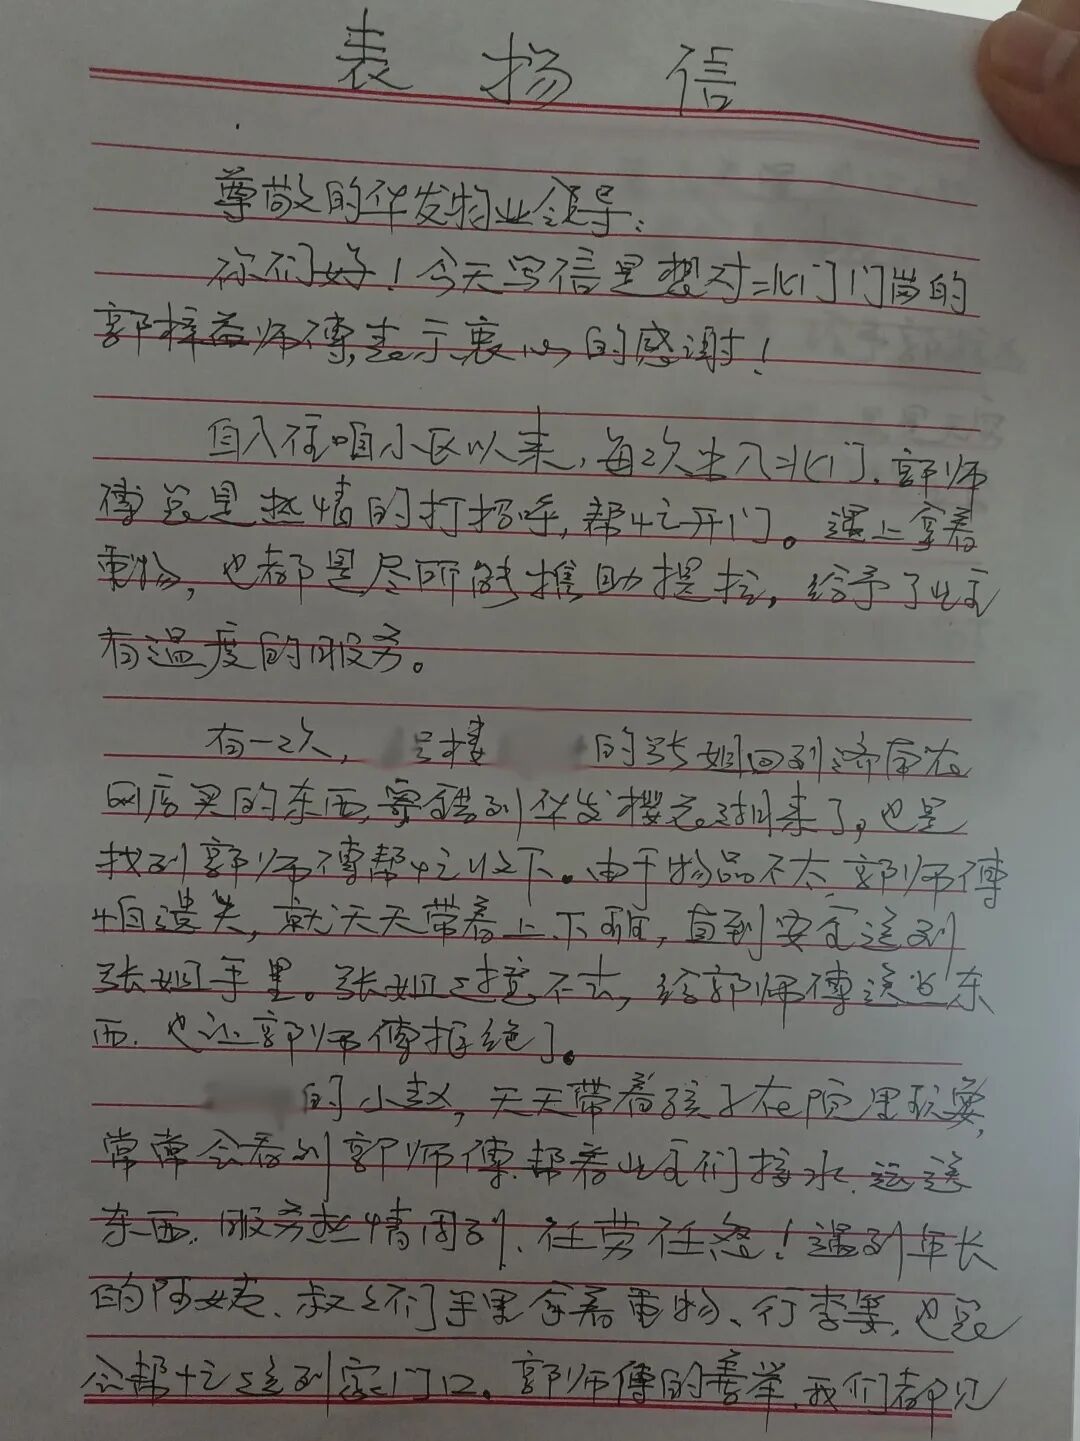 表扬信
尊敬的华发物业领导：
你们好！今天写信是想对北门门岗的
郭梓益师傅，表示衷心的感谢！
自入住咱小区以来，每次出入北门．郭师
傅总是热情的打招呼，帮忙开门。遇上拿着
重物，也都是尽所能携助提拉，给予了业主
有温度的服务。
有一次，号楼的张姐回到济南在
网店买的东西，寄错到华发樱花湖来了，也是
找到郭师傅帮忙收下。由于物品不大 郭师傅
怕遗失，就天天带着上下班，直到安全送到
张姐手里。张姐过意不去，给郭师傅送些东
西．也让郭师傅拒绝了。
的小赵，天天带着孩子在院里玩耍，
常常会看到郭师傅．帮着业主们接水．运送
东西．服务热情周到、任劳任怨！遇到年长
的阿姨、叔叔们手里拿着重物、行李等，也总
会帮忙送到家门口。郭师傅的善举．我们都见